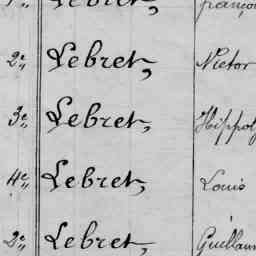 Lebret, françoi
2e, Lebret, Victor
3e, Lebret, Hippol
4e, Lebret, Louis
2e, Lebret, Guillaum